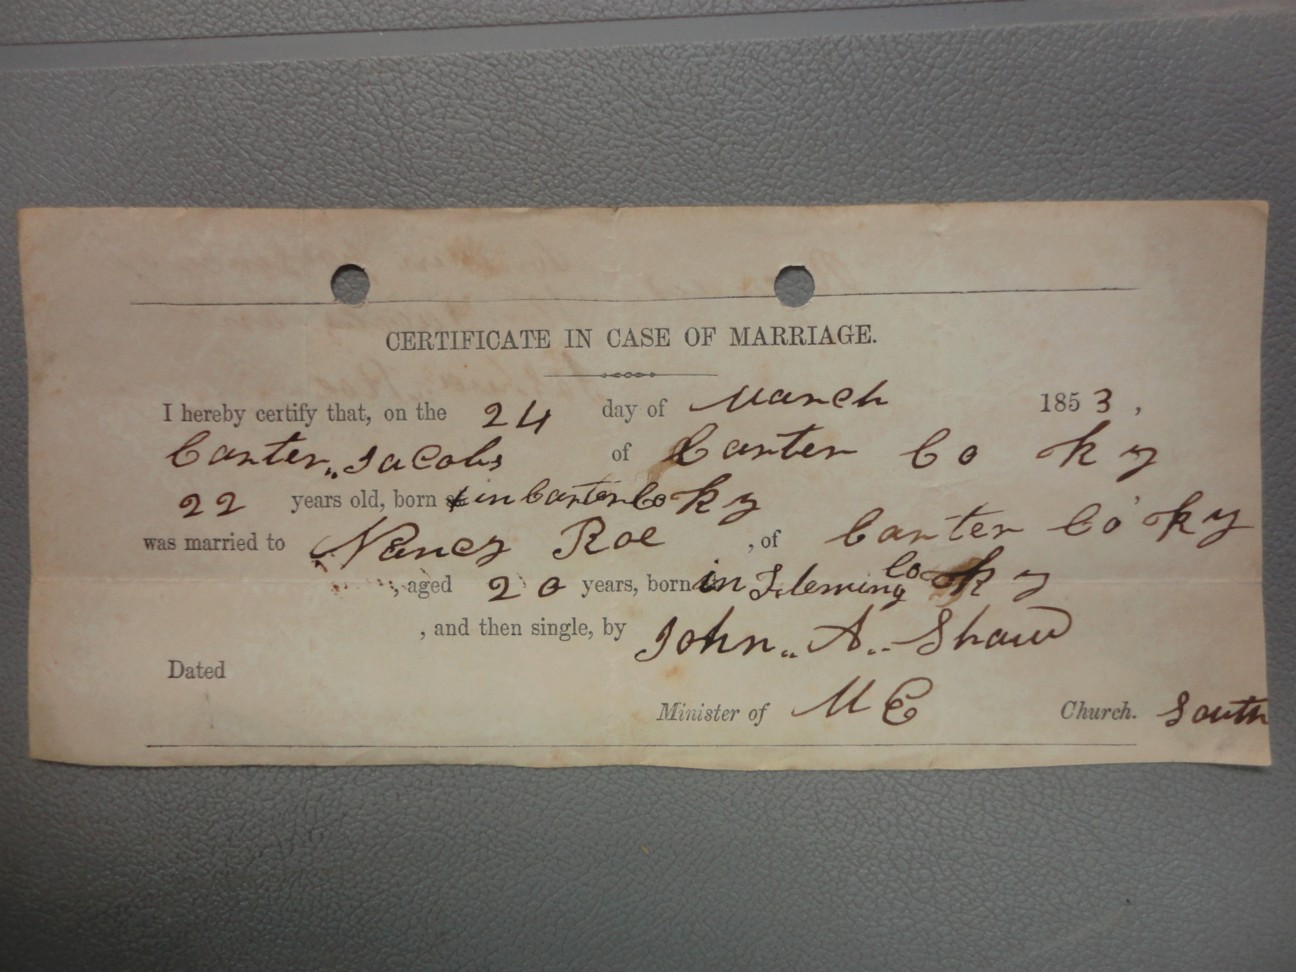 CERTIFICATE IN CASE OF MARRIAGE.
I hereby certify that, on the 24 day of March 1853,
Carter Jacobs of Carter Co Ky
22 years old, born in Carter Co Ky
was married to Nancy Roe, of Carter Co Ky
, aged 20 years, born in Fleming Co Ky
, and then single, by John A. Shaw
Dated
Minister of M E Church. South